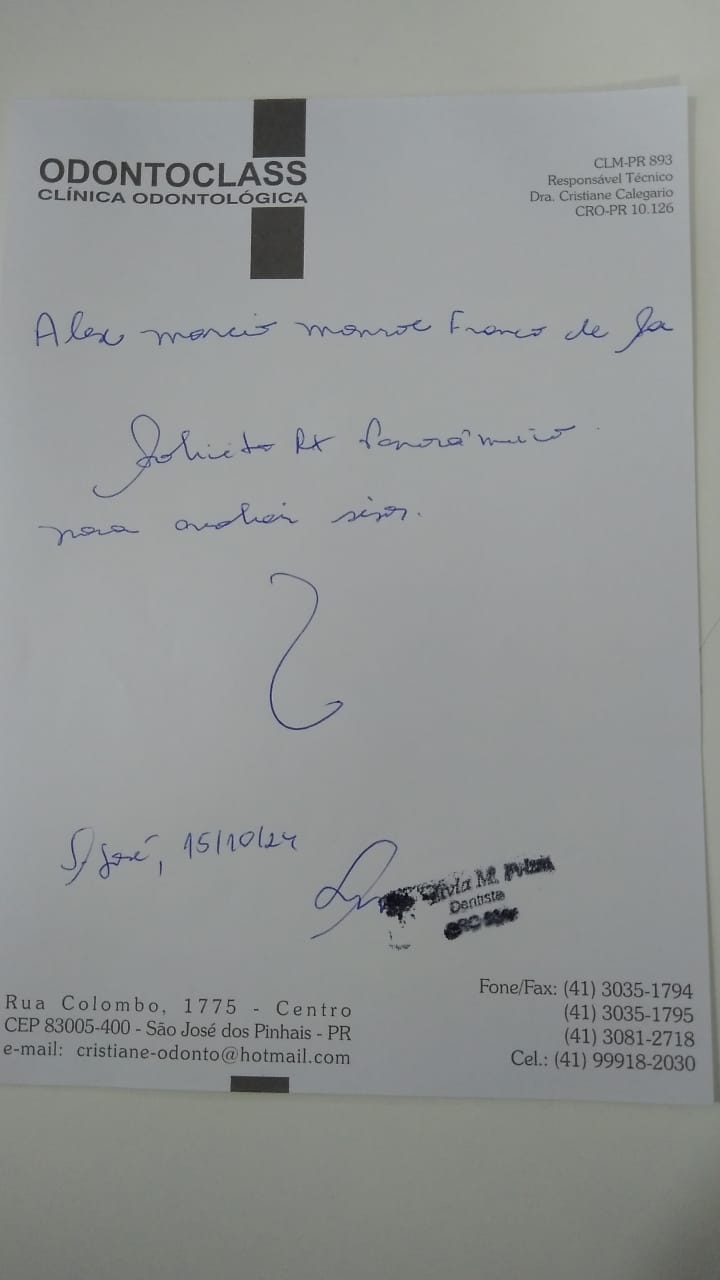 ODONTOCLASS
CLÍNICA ODONTOLÓGICA
CLM-PR 893
Responsável Técnico
Dra. Cristiane Calegario
CRO-PR 10.126
Alex Marcio Monroe Franco de Sa
Solicito RX Panorâmico
para avaliar sisos.
S/ José, 15/10/24
Silvia M.
Dentista
Rua Colombo, 1775 - Centro
CEP 83005-400 - São José dos Pinhais - PR
e-mail: cristiane-odonto@hotmail.com
Fone/Fax: (41) 3035-1794
(41) 3035-1795
(41) 3081-2718
Cel.: (41) 99918-2030